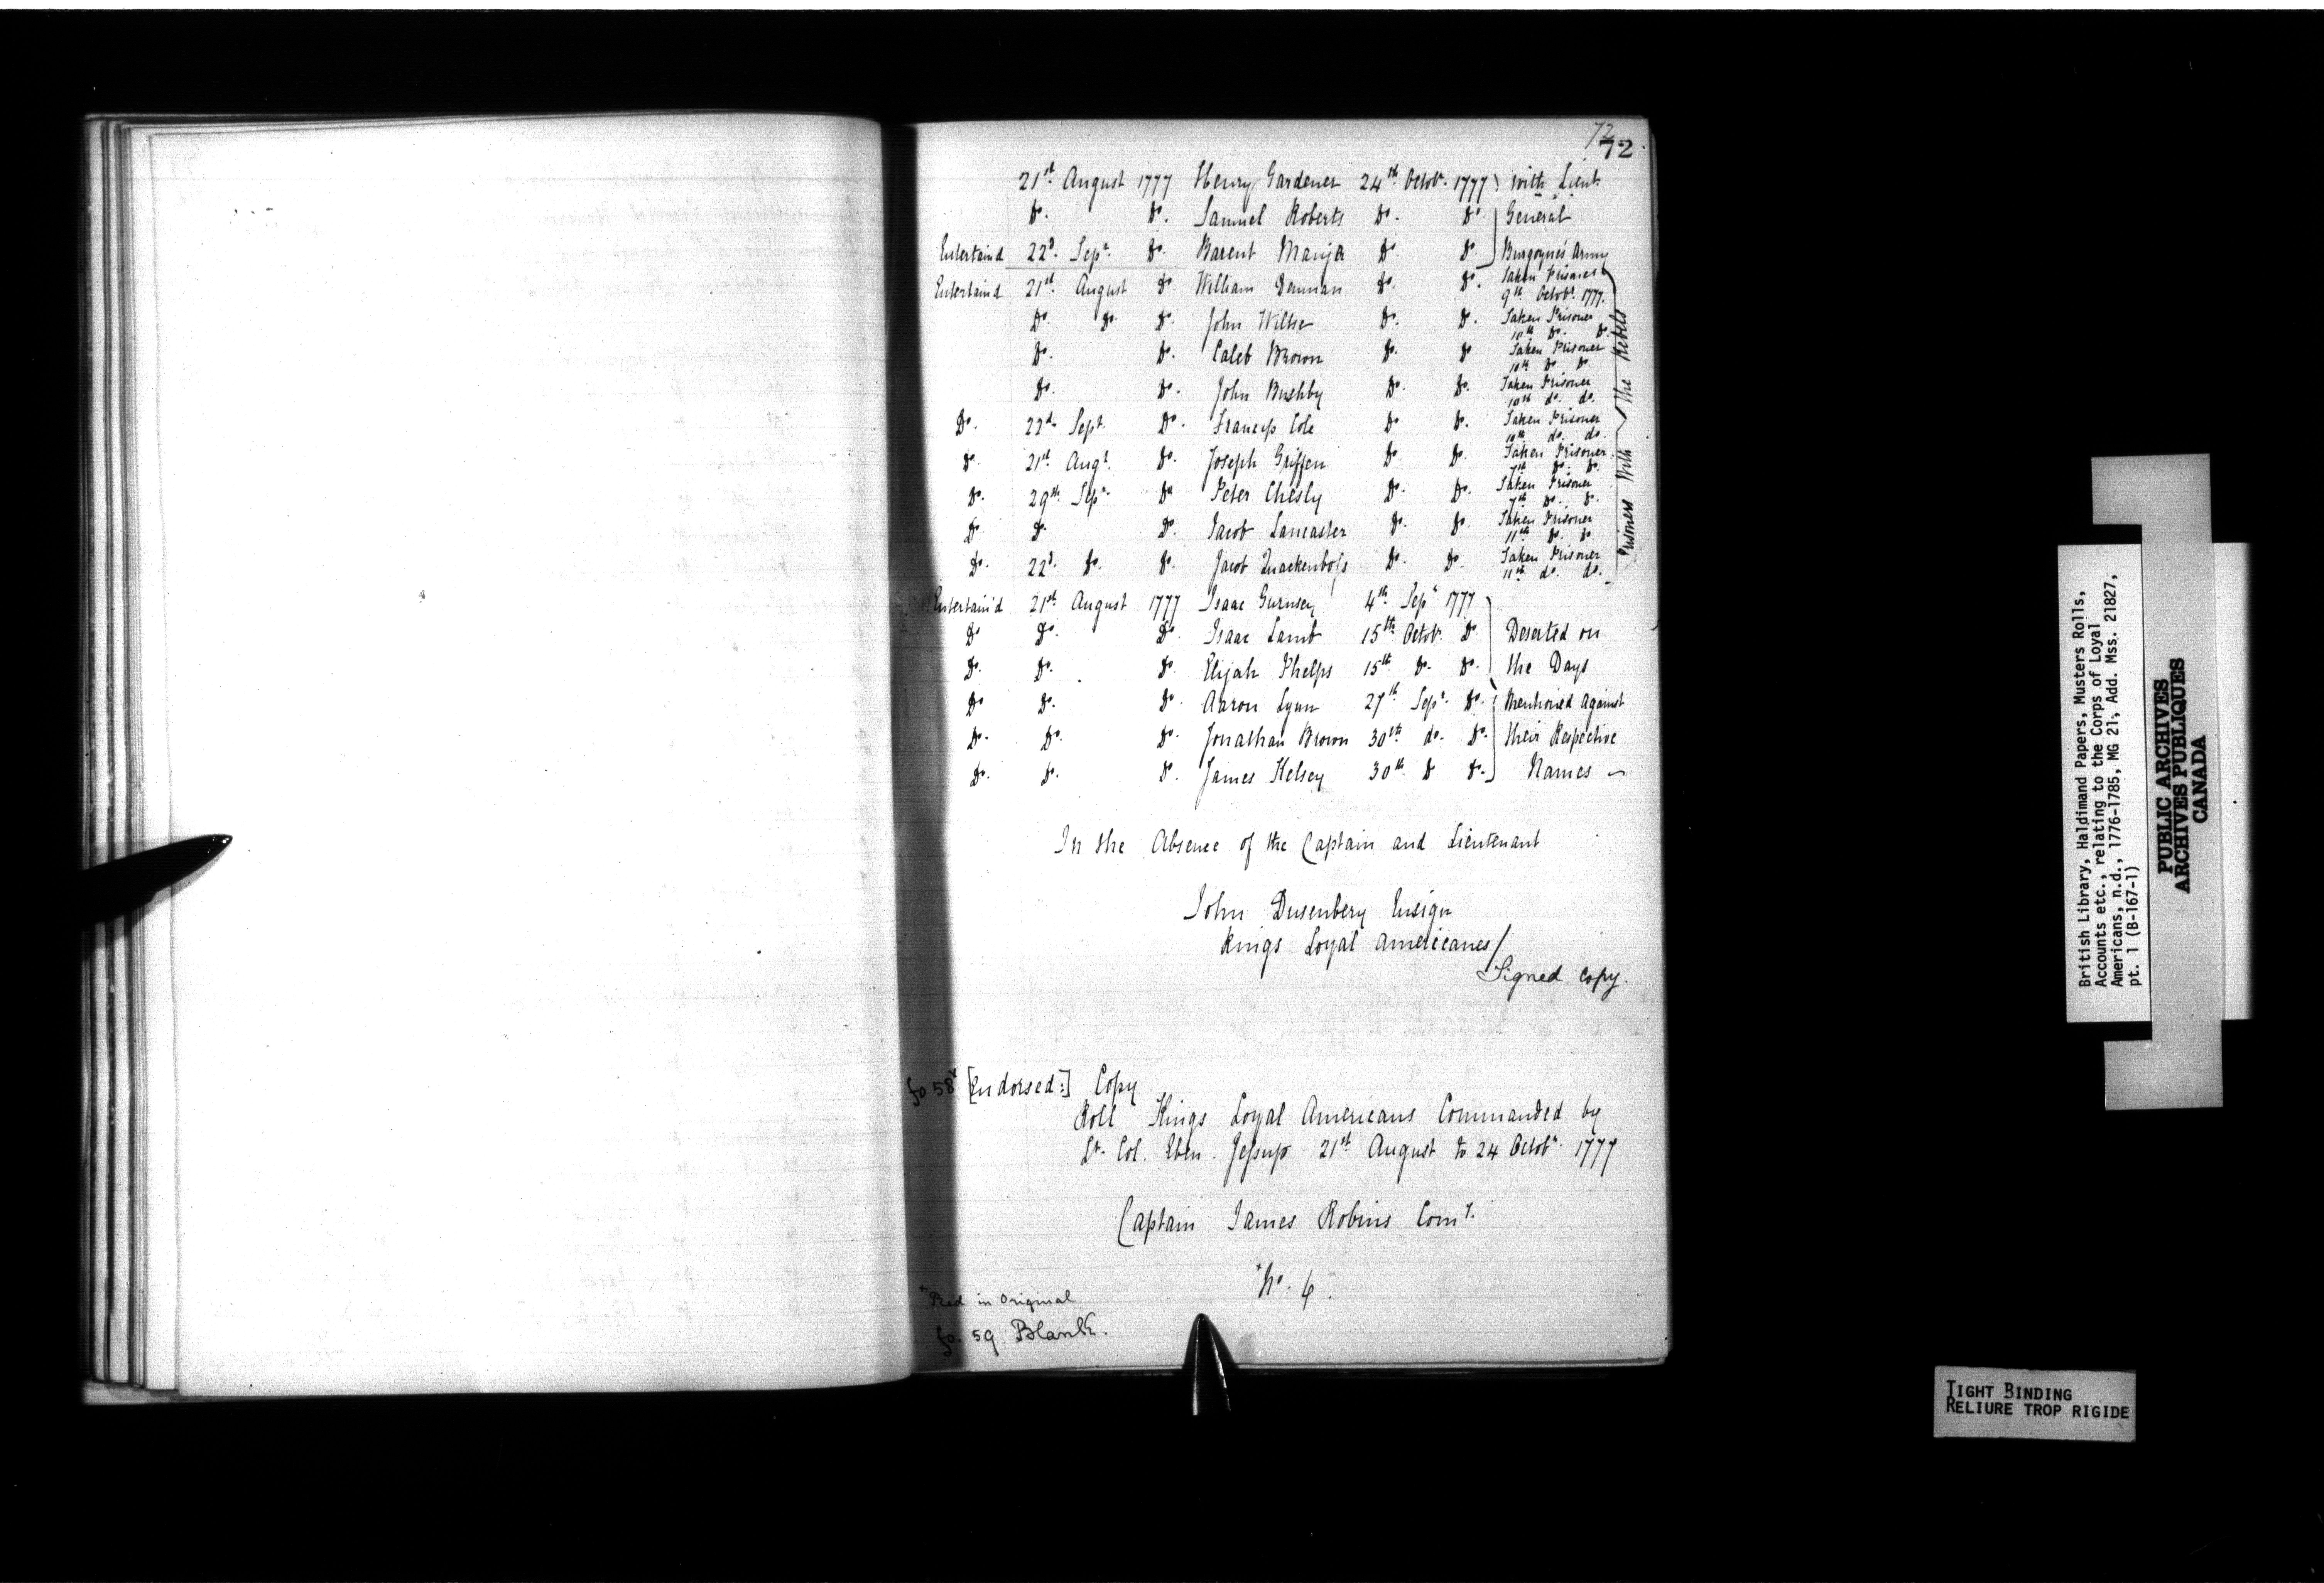 72
72
21st August 1777 Henry Gardener 24th Octobr. 1777 with Lieut.
Do. Do. Samuel Roberts Do. Do. General
Entertaind 22d. Sepr. Do. Barent Do. Do. Burgoyne's Army
Entertaind 21st. August Do William Denman Do. Do. Taken Prisoner
9th Octobr. 1777.
Do. Do. Do. John Wiltse Do. Do. Taken Prisoner
10th Do. Do.
Do. Do. Caleb Brown Do. Do Taken Prisoner
10th Do Do.
Do. Do. John Bushby Do. Do. Taken Prisoner
10th do. do.
Do. 22d. Sept. Do. Francis Cole Do. Do. Taken Prisoner
10th do. do.
Do. 21st Augt. Do. Joseph Griffen Do. Do. Taken Prisoner
7th Do. Do.
Do. 29th Sepr. Do Peter Chesly Do. Do. Taken Prisoner
7th Do. Do.
Do. Do. Do. Jacob Lancaster Do. Do. Taken Prisoner
11th Do. Do
Do. 22d. Do. Do. Jacob Quackenboss Do. Do. Taken Prisoner
11th do. do.
Prisoners With The Rebels
Entertain'd 21st. August 1777 Isaac Gurnsey 4th Sepr 1777
Do Do. Do. Isaac Lamb 15th Octobr. Do Deserted on
Do. Do. Do. Elijah Phelps 15th Do. Do. the Days
Do Do. Do. Aaron Lynn 27th Sepr. Do. Mentioned Against
Do. Do. Do. Jonathan Brown 30th do. Do. their Respective
Do. Do. Do. James Kelsey 30th. Do Do. Names
In the Absence of the Captain and Lieutenant
John Dusenbery Ensign
Kings Loyal Americanes/
Signed copy.
fo 58v [Endorsed:] Copy
Roll Kings Loyal Americans Commanded by
Lt. Col. Eben. Jessup 21st August to 24 Octobr. 1777
Captain James Robins Comy.
*No. 6.
* Red in Original
fo. 59 Blank.
British Library, Haldimand Papers, Musters Rolls,
Accounts etc., relating to the Corps of Loyal
Americans, n.d., 1776-1785, MG 21, Add. Mss. 21827,
pt. 1 (B-167-1)
PUBLIC ARCHIVES
ARCHIVES PUBLIQUES
CANADA
TIGHT BINDING
RELIURE TROP RIGIDE